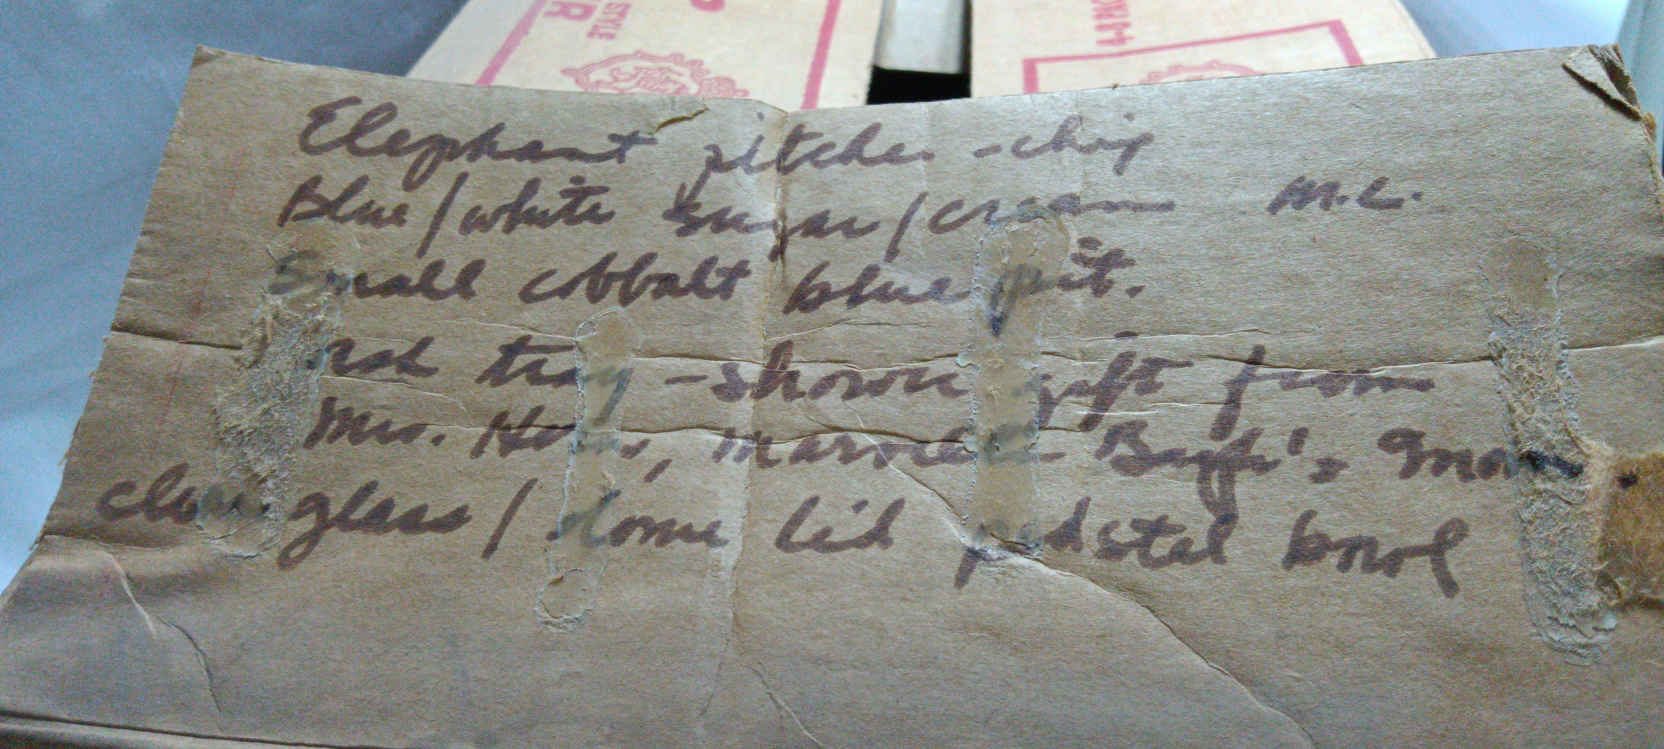 STYLE
Elephant pitcher - chip
Blue/white sugar/cream M.C.
Small cobbalt blue pit.
Ash tray - shower gift from
Mrs. Mom
clear glass/dome lid pedstal bowl